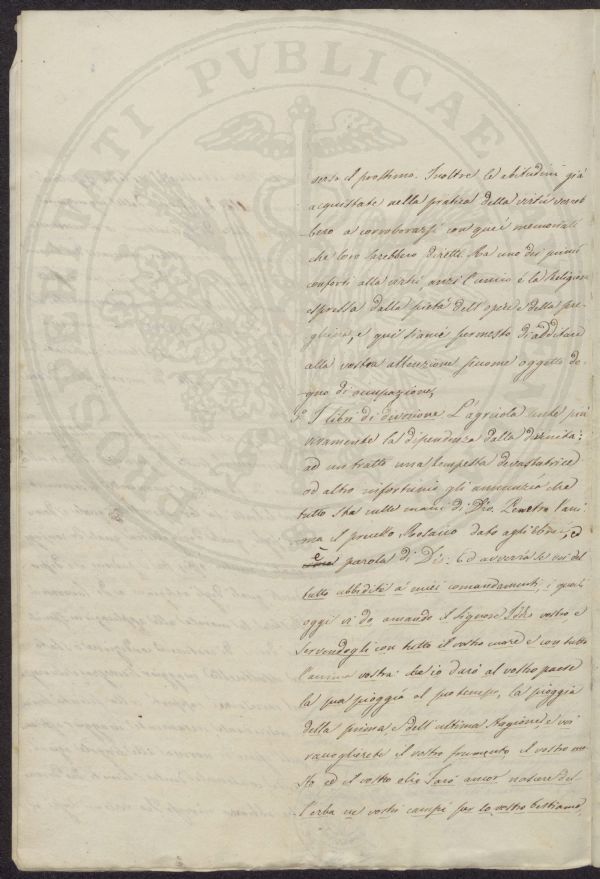 verso il prossimo. Inoltre le abitudini già
acquistate nella pratica della virtù verreb
bero a corroborarsi con que' memoriali
che loro sarebbero diretti. Ma uno dei primi
conforti alla virtù, anzi l'unico è la Religione
espressa dalla pietà dell'opere e della pre-
ghiera, e qui siami permesso di additare
alla vostra attenzione siccome oggetto de-
gno di occupazione
I libri di divozione L'agricola sente più
vivamente la dipendenza dalla divinità:
ad un tratto una tempesta devastatrice
od altro infortunio gli annunzia che
tutto sta nelle mani di Dio. Penetra l'ani
ma il precetto Mosaico dato agli Ebrei, ed
è parola di Dio: Ed avverrà se voi del
tutto ubbidite a' miei comandamenti, i quali
oggi vi do amando il Signore Iddio vostro e
servendogli con tutto il vostro cuore e con tutta
l'anima vostra: che io darò al vostro paese
la sua pioggia al suo tempo, la pioggia
della prima e dell'ultima stagione, e voi
raccoglierete il vostro frumento, il vostro mo
sto ed il vostro olio. Farò ancor nascere del
l'erba ne' vostri campi per lo vostro bestiame,
PVBLICAE